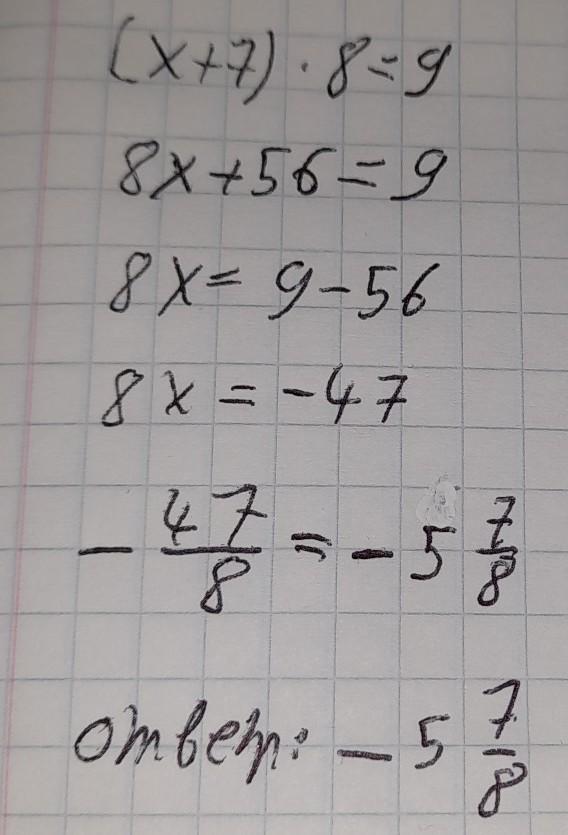 (x+7)·8=9
8x+56=9
8x=9-56
8x=-47
-47/8=-5 7/8
ответ: -5 7/8